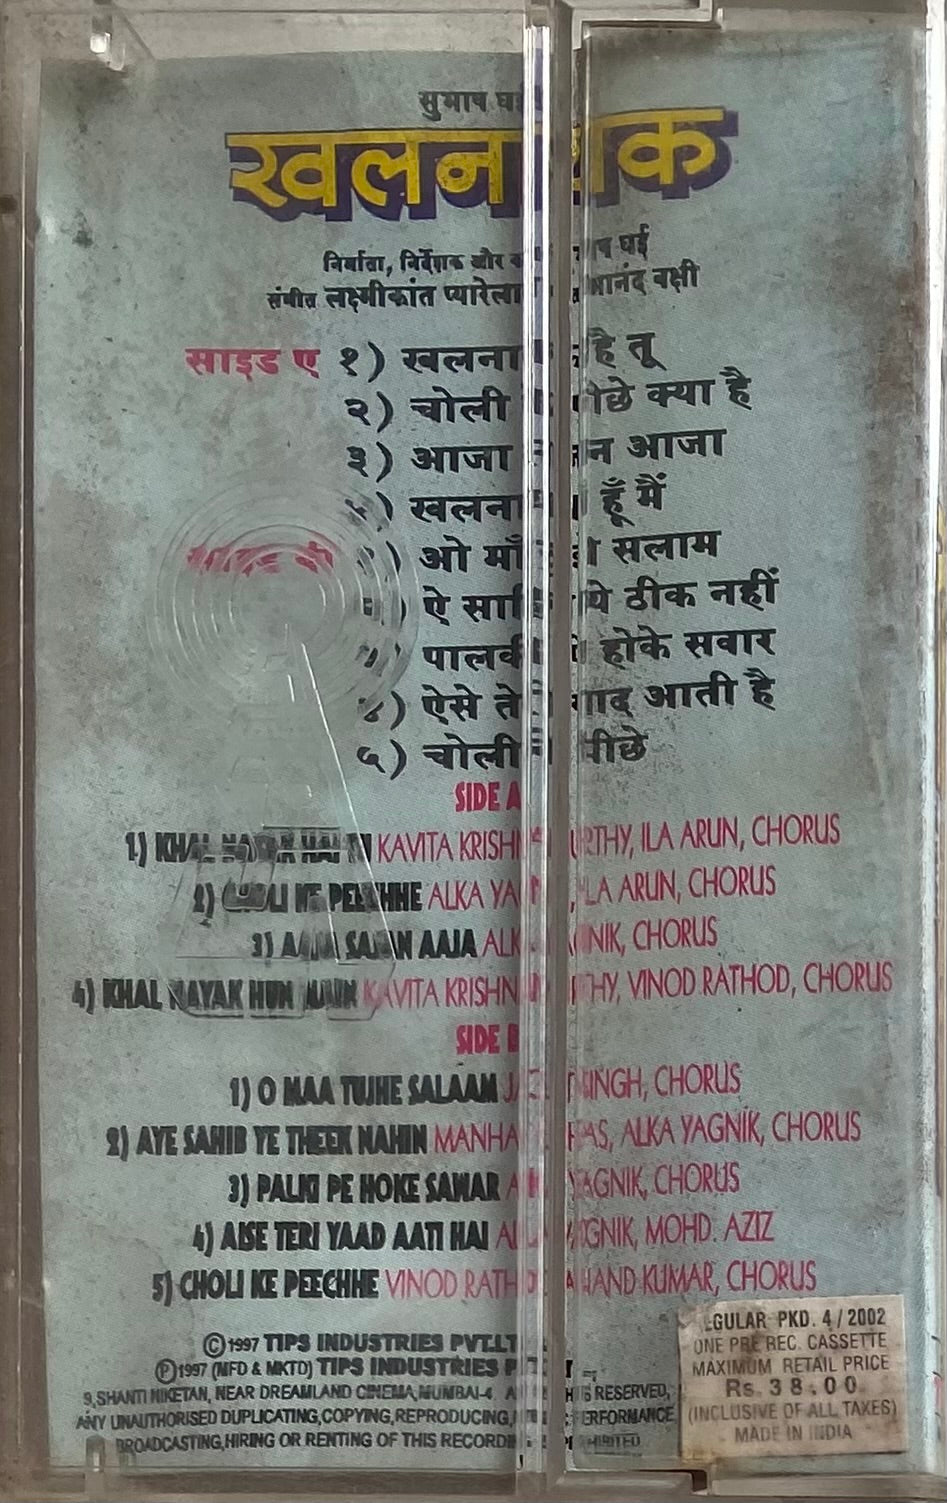 सुभाष घई
खलनायक
निर्माता, निर्देशक और घई
संगीत लक्ष्मीकांत प्यारेलाल आनंद बक्षी
साइड ए १) खलनायक है तू
२) चोली के पीछे क्या है
३) आजा साजन आजा
४) खलनायक हूँ मैं
साइड बी १) ओ माँ तुझे सलाम
२) ऐ साहिब ये ठीक नहीं
३) पालकी पे होके सवार
४) ऐसे तेरी याद आती है
५) चोली के पीछे
SIDE A
1) KHAL NAYAK HAI TU KAVITA KRISHNAMURTHY, ILA ARUN, CHORUS
2) CHOLI KE PEECHHE ALKA YAGNIK, ILA ARUN, CHORUS
3) AAJA SAJAN AAJA ALKA YAGNIK, CHORUS
4) KHAL NAYAK HUN MAIN KAVITA KRISHNAMURTHY, VINOD RATHOD, CHORUS
SIDE B
1) O MAA TUJHE SALAAM JAGJIT SINGH, CHORUS
2) AYE SAHIB YE THEEK NAHIN MANHAR UDHAS, ALKA YAGNIK, CHORUS
3) PALKI PE HOKE SAWAR ALKA YAGNIK, CHORUS
4) AISE TERI YAAD AATI HAI ALKA YAGNIK, MOHD. AZIZ
5) CHOLI KE PEECHHE VINOD RATHOD, ANAND KUMAR, CHORUS
©1997 TIPS INDUSTRIES PVT.LTD
℗1997 (MFD & MKTD) TIPS INDUSTRIES
9, SHANTI NIKETAN, NEAR DREAMLAND CINEMA, MUMBAI-4. ALL RIGHTS RESERVED,
ANY UNAUTHORISED DUPLICATING, COPYING, REPRODUCING, PERFORMANCE
BROADCASTING, HIRING OR RENTING OF THIS RECORDING PROHIBITED
REGULAR PKD. 4/2002
ONE PRE REC. CASSETTE
MAXIMUM RETAIL PRICE
Rs. 38.00
(INCLUSIVE OF ALL TAXES)
MADE IN INDIA